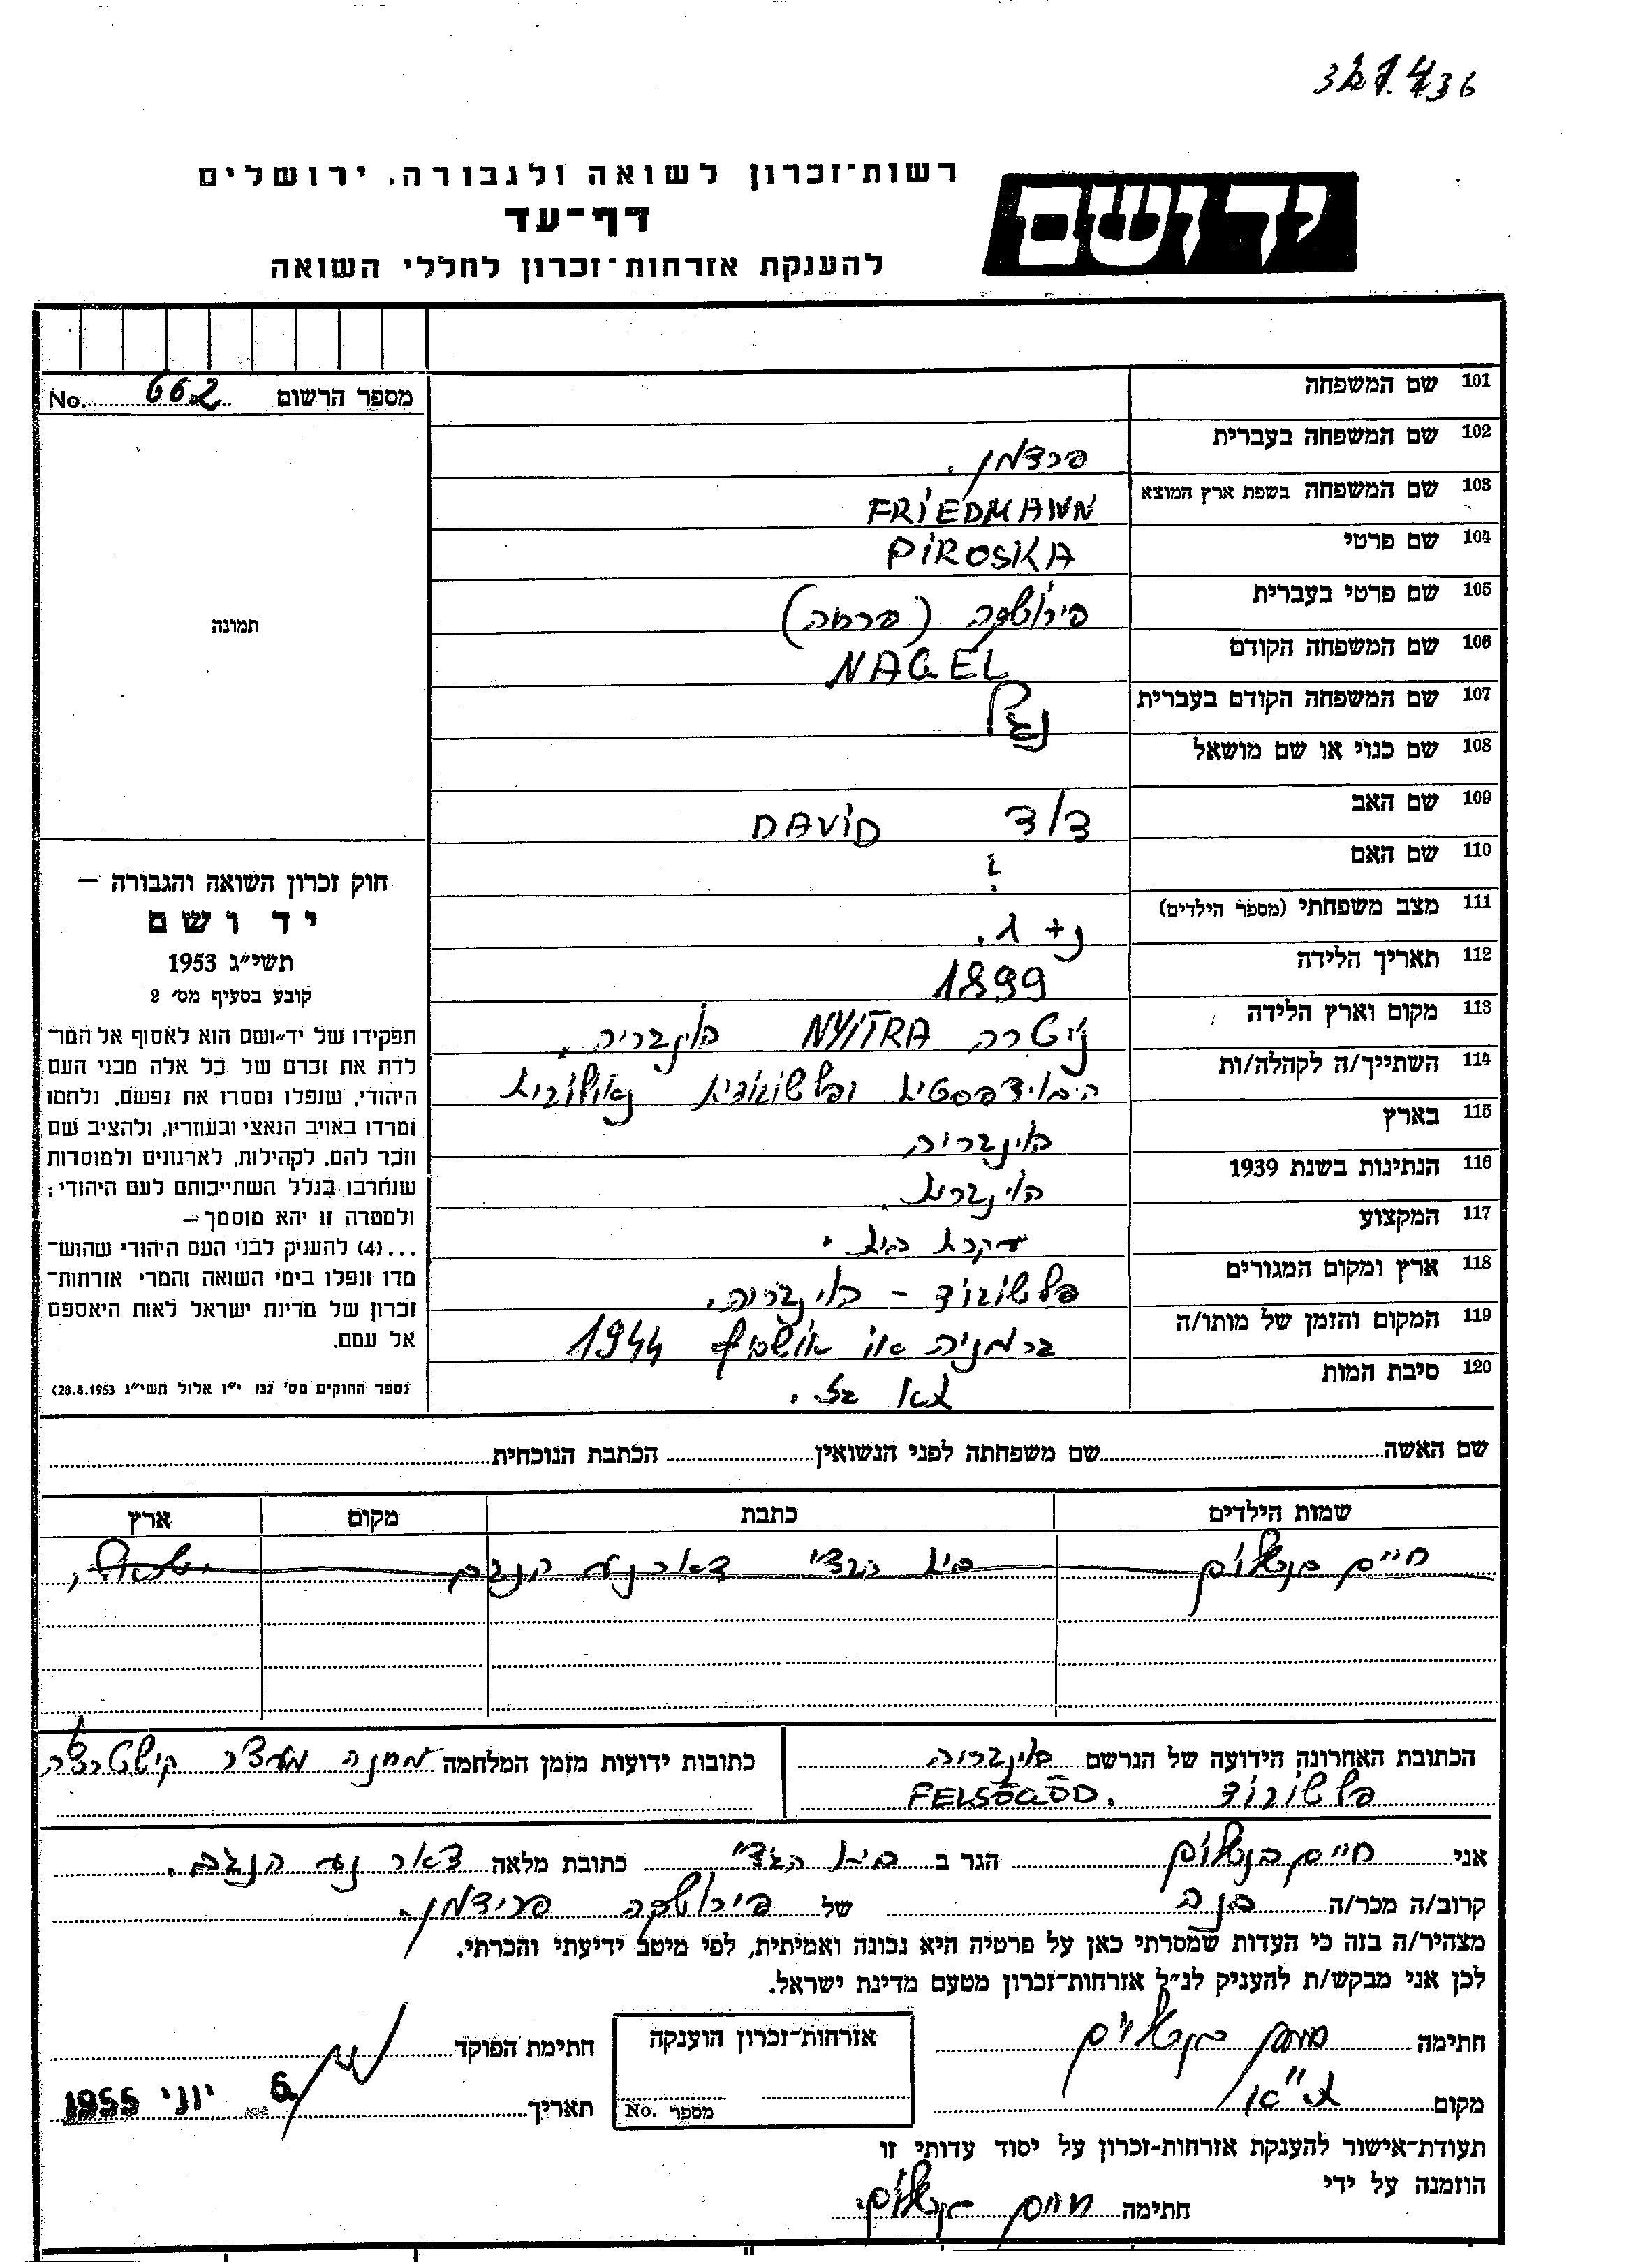 321.436
רשות־זכרון לשואה ולגבורה, ירושלים
יד ושם
דף־עד
להענקת אזרחות־זכרון לחללי השואה
No. 662 מספר הרשום
תמונה
101 שם המשפחה
102 שם המשפחה בעברית פרידמן.
103 שם המשפחה בשפת ארץ המוצא FRIEDMANN
104 שם פרטי PIROSKA
105 שם פרטי בעברית פירושקה (פרחה)
106 שם המשפחה הקודם NAGEL
107 שם המשפחה הקודם בעברית נגל
108 שם כנוי או שם מושאל
109 שם האב דוד DAVID
110 שם האם ?
111 מצב משפחתי (מספר הילדים) נ+ 1.
112 תאריך הלידה 1899
113 מקום וארץ הלידה ניטרה NYITRA הונגריה,
114 השתייך/ה לקהלה/ות
115 בארץ הונגריה
116 הנתינות בשנת 1939 הונגרית.
117 המקצוע עקרת בית.
118 ארץ ומקום המגורים פלשוגוד - הונגריה.
119 המקום והזמן של מותו/ה גרמניה או אושביץ 1944
120 סיבת המות תא גז.
חוק זכרון השואה והגבורה —
יד ושם
תשי״ג 1953
קובע בסעיף מס׳ 2
תפקידו של יד־ושם הוא לאסוף אל המו־
לדת את זכרם של כל אלה מבני העם
היהודי, שנפלו ומסרו את נפשם, נלחמו
ומרדו באויב הנאצי ובעוזריו, ולהציב שם
וזכר להם, לקהילות, לארגונים ולמוסדות
שנחרבו בגלל השתייכותם לעם היהודי;
ולמטרה זו יהא מוסמך —
...(4) להעניק לבני העם היהודי שהוש־
מדו ונפלו בימי השואה והמרי אזרחות־
זכרון של מדינת ישראל לאות היאספם
אל עמם.
(ספר החוקים מס׳ 132 י״ז אלול תשי״ג 28.8.1953)
שם האשה שם משפחתה לפני הנשואין הכתבת הנוכחית
שמות הילדים כתבת מקום ארץ
חיים בן שלום בית הגדי דאר נע הנגב ישראל,
הכתובת האחרונה הידועה של הנרשם הונגריה
פלשוגוד FELSŐGÖD.
כתובות ידועות מזמן המלחמה מחנה מעצר קישטרצ׳ה
אני חיים בן שלום הגר ב בית הגדי כתובת מלאה דאר נע הנגב.
קרוב/ה מכר/ה בנה של פירושקה פרידמן.
מצהיר/ה בזה כי העדות שמסרתי כאן על פרטיה היא נכונה ואמיתית, לפי מיטב ידיעתי והכרתי.
לכן אני מבקש/ת להעניק לנ״ל אזרחות־זכרון מטעם מדינת ישראל.
חתימה חיים בן שלום
מקום ת״א
אזרחות־זכרון הוענקה
No. מספר
חתימת הפוקד
תאריך 6. יוני 1955
תעודת־אישור להענקת אזרחות־זכרון על יסוד עדותי זו
הוזמנה על ידי
חתימה חיים בן שלום